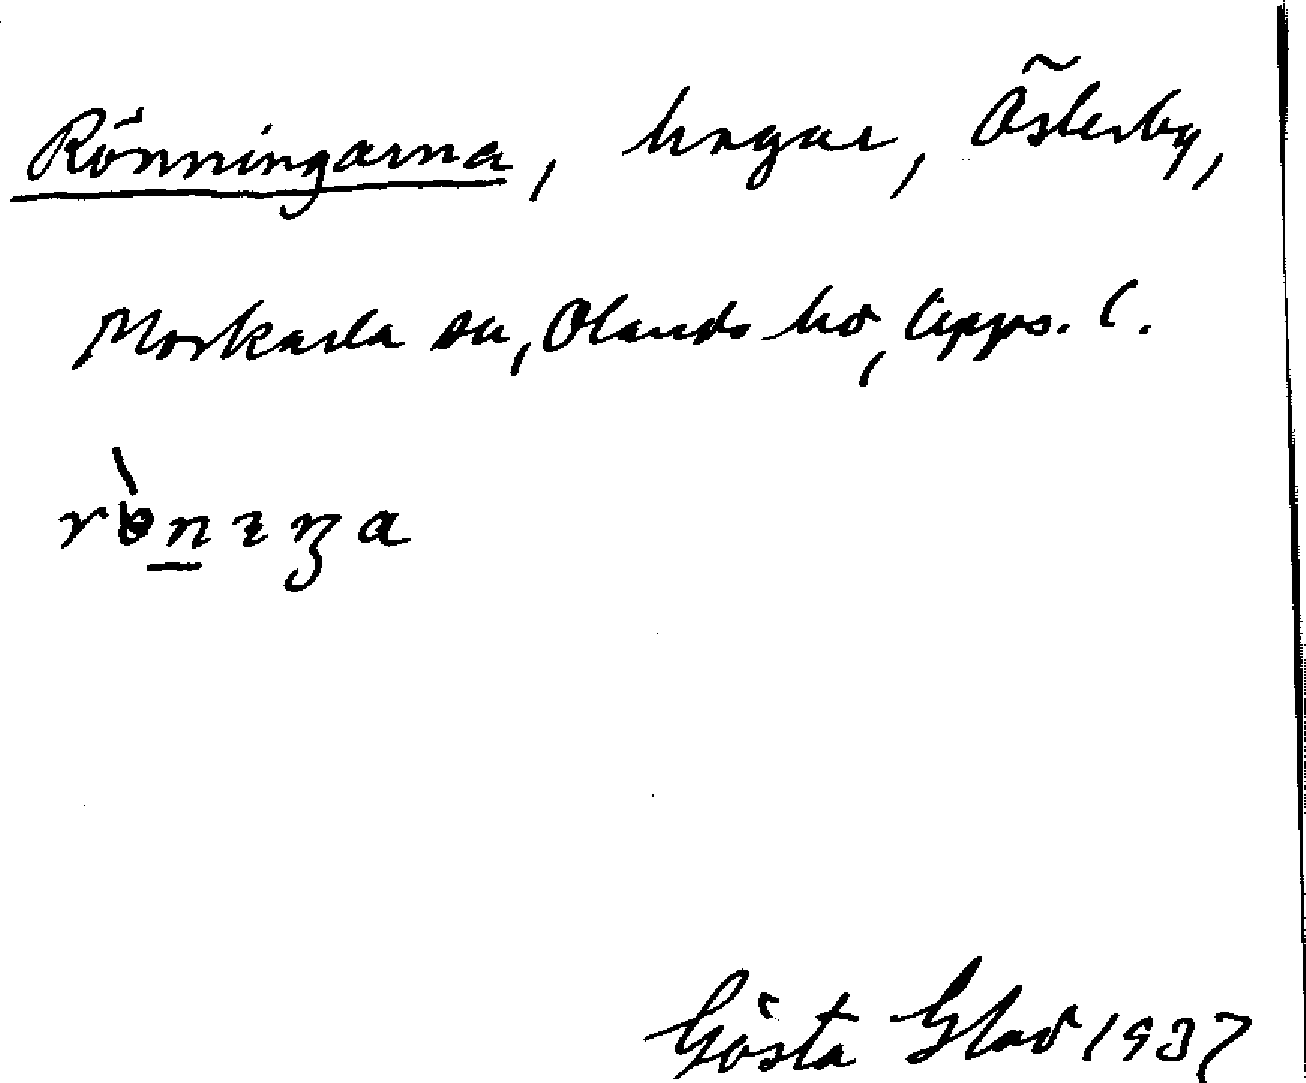 Rönningarna, hagar, Österby,
Morkarla sn, Olands hd, Upps. l.
Gösta Glad 1937